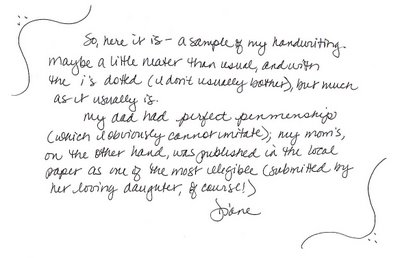 So, here it is - a sample of my handwriting.
Maybe a little neater than usual, and with
the i's dotted (I don't usually bother), but much
as it usually is.
My dad had perfect penmenship
(which I obviously cannot imitate); my mom's,
on the other hand, was published in the local
paper as one of the most illegible (submitted by
her loving daughter, of course!)
Diane